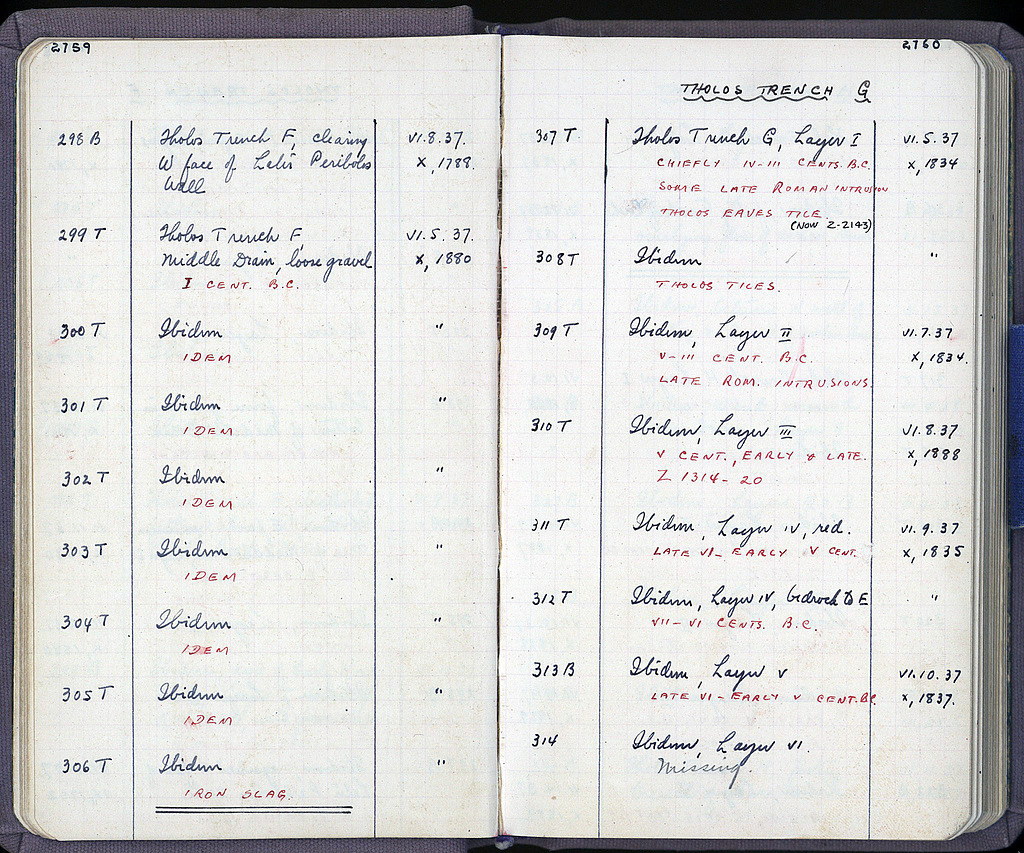 2759
298 B Tholos Trench F, clearing VI.8.37.
W face of Late Peribolos X, 1788.
Wall
299 T Tholos Trench F, VI.5.37.
Middle Drain, loose gravel X, 1880
I CENT. B.C.
300 T Ibidem "
IDEM
301 T Ibidem "
IDEM
302 T Ibidem "
IDEM
303 T Ibidem "
IDEM
304 T Ibidem "
IDEM
305 T Ibidem "
IDEM
306 T Ibidem "
IRON SLAG.
2760
THOLOS TRENCH G
307 T Tholos Trench G, Layer I VI.5.37
CHIEFLY IV-III CENTS. B.C. X, 1834
SOME LATE ROMAN INTRUSION
THOLOS EAVES TILE.
(NOW Z-2143)
308 T Ibidem "
THOLOS TILES.
309 T Ibidem, Layer II VI.7.37
V-III CENT. B.C. X, 1834.
LATE ROM. INTRUSIONS.
310 T Ibidem, Layer III VI.8.37
V CENT., EARLY & LATE. X, 1888
Z 1314-20
311 T Ibidem, Layer IV, red. VI.9.37
LATE VI- EARLY V CENT. X, 1835
312 T Ibidem, Layer IV, bedrock to E "
VII-VI CENTS. B.C.
313 B Ibidem, Layer V VI.10.37
LATE VI-EARLY V CENT. B.C. X, 1837.
314 Ibidem, Layer VI.
Missing.